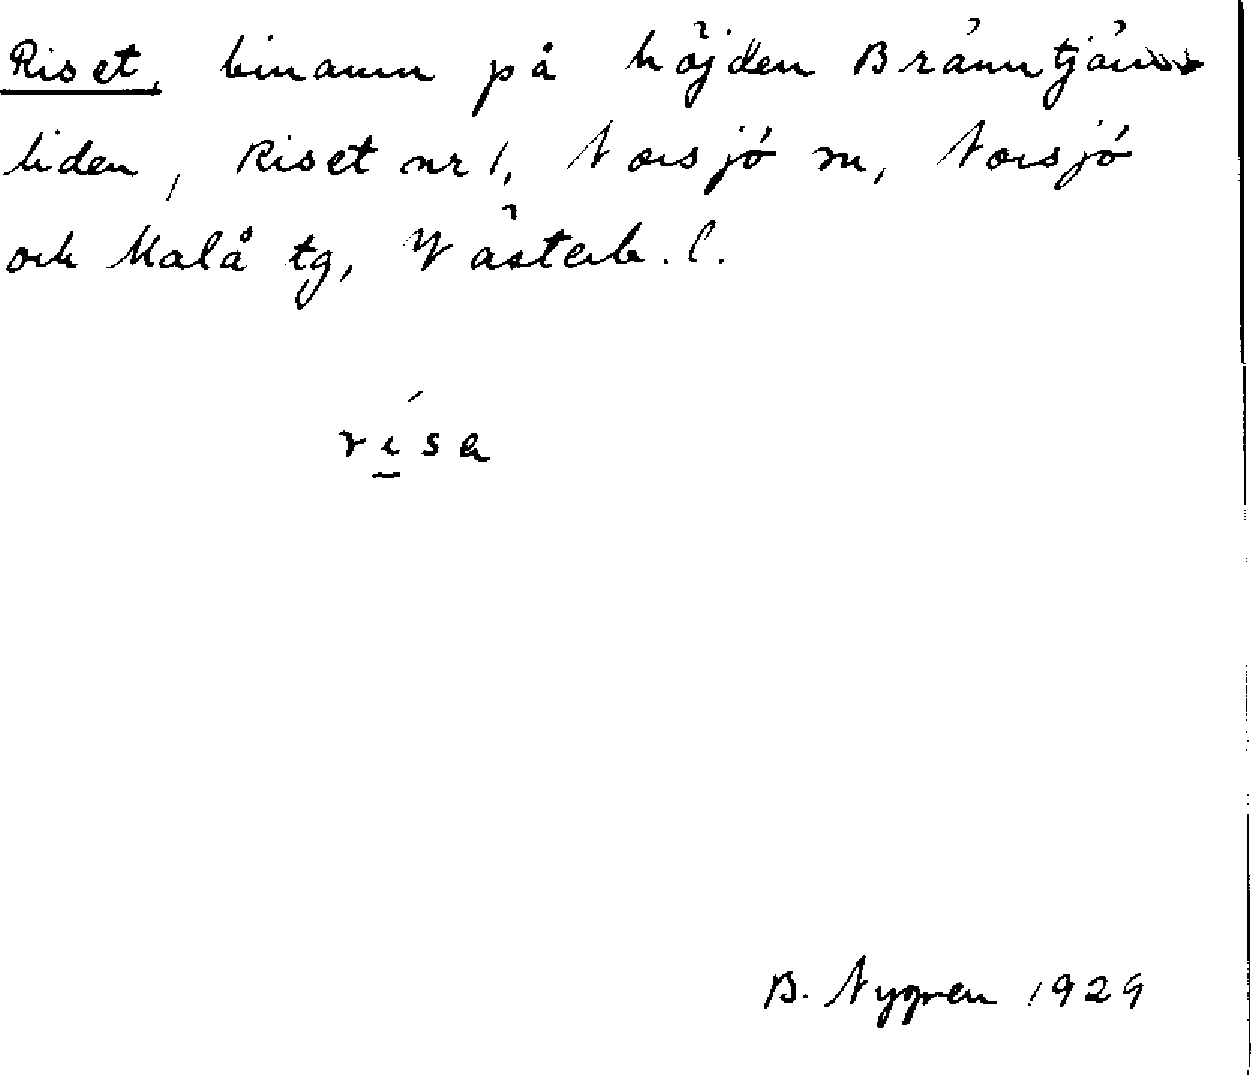 Riset, binamn på höjden Bränntjärn
liden, Riset nr 1, Norsjö sn, Norsjö
och Malå tg, Västerb. l.
rísa
B. Nygren 1929